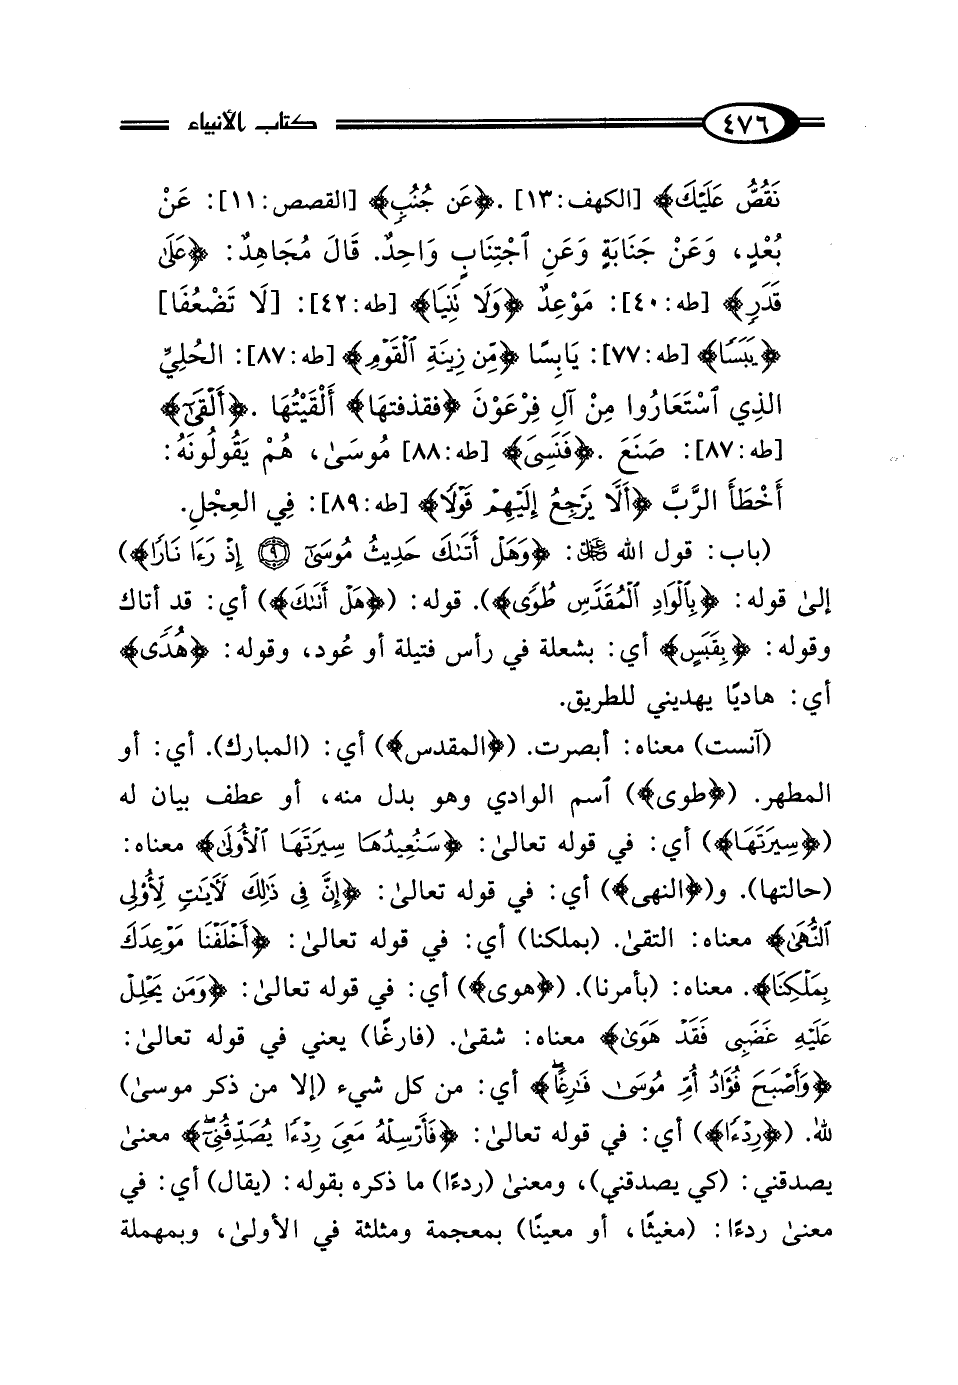 ٤٧٦ كتاب الأنبياء
نَقُصُّ عَلَيْكَ﴾ [الكهف:١٣] .﴿عَن جُنُبٍ﴾ [القصص:١١]: عَنْ
بُعْدٍ، وَعَنْ جَنَابَةٍ وَعَنِ ٱجْتِنَابٍ وَاحِدٌ. قَالَ مُجَاهِدٌ: ﴿عَلَىٰ
قَدَرٍ﴾ [طه:٤٠]: مَوْعِدٌ ﴿وَلَا تَنِيَا﴾ [طه:٤٢]: [لَا تَضْعُفَا]
﴿يَبَسًا﴾ [طه:٧٧]: يَابِسًا ﴿مِّن زِينَةِ ٱلْقَوْمِ﴾ [طه:٨٧]: الحُلِيِّ
الذِي ٱسْتَعَارُوا مِنْ آلِ فِرْعَوْنَ ﴿فقذفتها﴾ أَلْقَيْتُهَا .﴿أَلْقَىٰٓ﴾
[طه:٨٧]: صَنَعَ .﴿فَنَسِىَ﴾ [طه:٨٨] مُوسَىٰ، هُمْ يَقُولُونَهُ:
أَخْطَأَ الرَّبَّ ﴿أَلَّا يَرْجِعُ إِلَيْهِمْ قَوْلًا﴾ [طه:٨٩]: فِي العِجْلِ.
(باب: قول الله ﷻ: ﴿وَهَلْ أَتَىٰكَ حَدِيثُ مُوسَىٰٓ ٩ إِذْ رَءَا نَارًا﴾)
إلىٰ قوله: ﴿بِٱلْوَادِ ٱلْمُقَدَّسِ طُوًى﴾). قوله: (﴿هَلْ أَتَىٰكَ﴾) أي: قد أتاك
وقوله: ﴿بِقَبَسٍ﴾ أي: بشعلة في رأس فتيلة أو عُود، وقوله: ﴿هُدًى﴾
أي: هاديًا يهديني للطريق.
(آنست) معناه: أبصرت. (﴿المقدس﴾) أي: (المبارك). أي: أو
المطهر. (﴿طوى﴾) ٱسم الوادي وهو بدل منه، أو عطف بيان له
(﴿سِيرَتَهَا﴾) أي: في قوله تعالىٰ: ﴿سَنُعِيدُهَا سِيرَتَهَا ٱلْأُولَىٰ﴾ معناه:
(حالتها). و(﴿النهى﴾) أي: في قوله تعالىٰ: ﴿إِنَّ فِى ذَٰلِكَ لَآيَٰتٍ لِّأُوْلِى
ٱلنُّهَىٰ﴾ معناه: التقىٰ. (بملكنا) أي: في قوله تعالىٰ: ﴿أَخْلَفْنَا مَوْعِدَكَ
بِمَلْكِنَا﴾. معناه: (بأمرنا). (﴿هوى﴾) أي: في قوله تعالىٰ: ﴿وَمَن يَحْلِلْ
عَلَيْهِ غَضَبِى فَقَدْ هَوَىٰ﴾ معناه: شقىٰ. (فارغًا) يعني في قوله تعالىٰ:
﴿وَأَصْبَحَ فُؤَادُ أُمِّ مُوسَىٰ فَٰرِغًاۖ﴾ أي: من كل شيء (إلا من ذكر موسىٰ)
لله. (﴿رِدْءًا﴾) أي: في قوله تعالىٰ: ﴿فَأَرْسِلْهُ مَعِىَ رِدْءًا يُصَدِّقُنِىٓۖ﴾ معنىٰ
يصدقني: (كي يصدقني)، ومعنىٰ (ردءًا) ما ذكره بقوله: (يقال) أي: في
معنىٰ ردءًا: (مغيثًا، أو معينًا) بمعجمة ومثلثة في الأولىٰ، وبمهملة